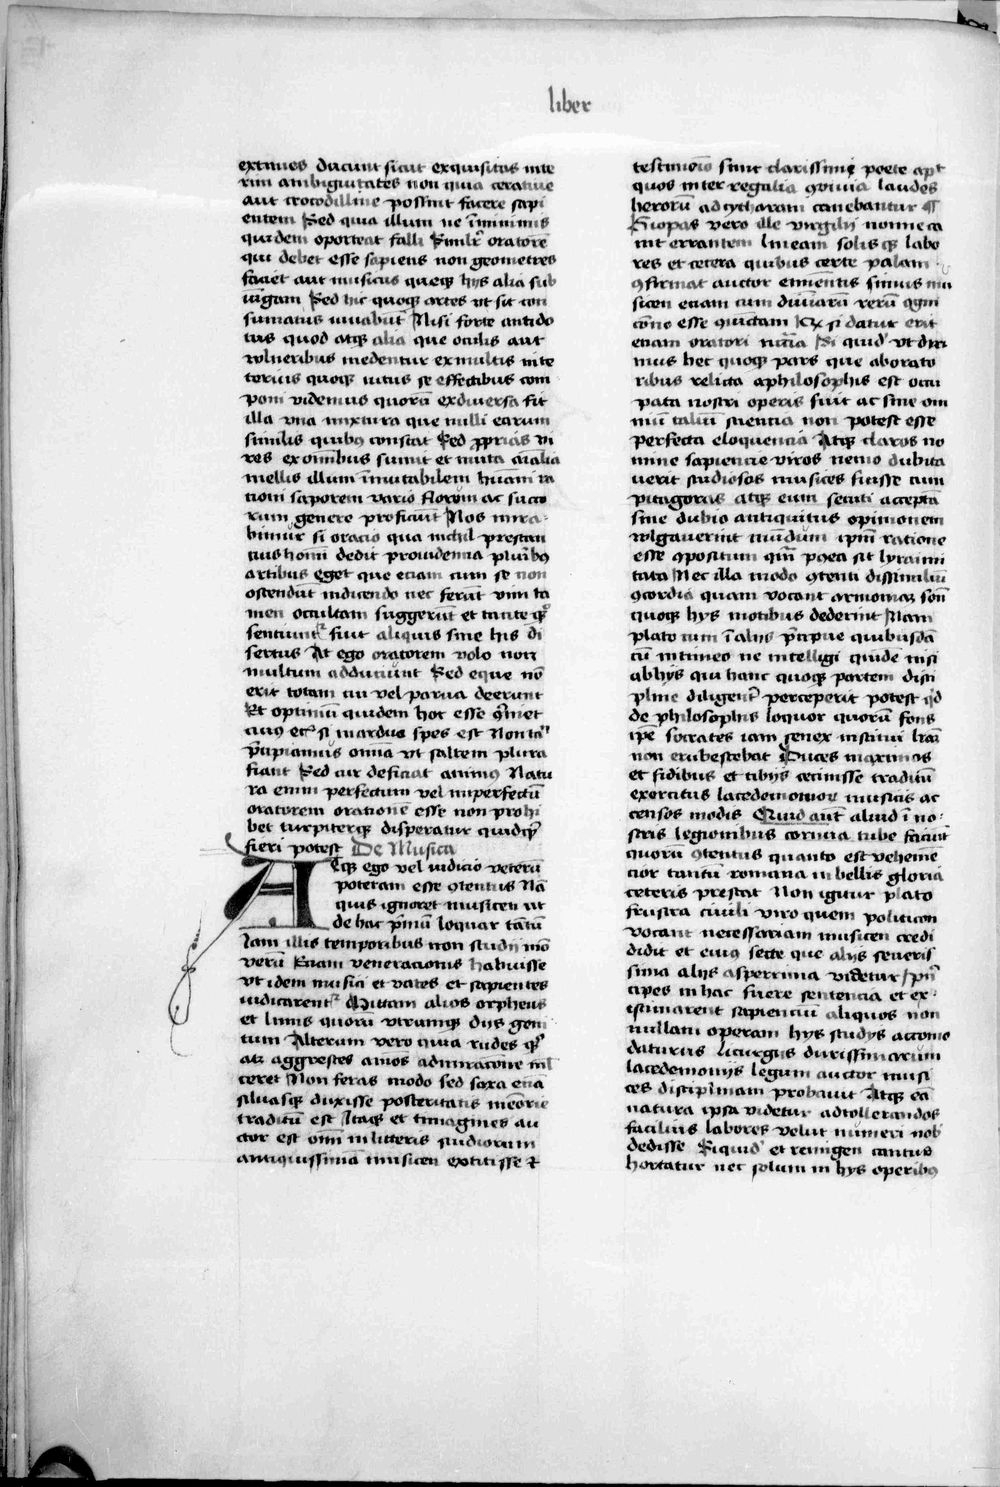 liber
extimes ducunt sicut exquisitas inte
rim ambiguitates non quia ceratine
aut crocodilline possint facere sapi
entem Sed quia illum ne ĩminimis
quidem oporteat falli Similr̃ oratorẽ
qui debet esse sapiens non geometres
faciet aut musicus queqꝫ hys alia sub
iũgam Sed hic quoqꝫ artes vt sit con
sumatus iuuabunt̃ Nisi forte antido
tus quod atqꝫ alia que oculis aut
vulneribus medentur ex multis inte
terius quoqꝫ iutus se effectibus com
poni videmus quorũ exdiuersa fit
illa vna mixtura que nulli earum
similis quibꝰ constat Sed ꝓprias vi
res ex omĩbus sumit et muta aĩalia
mellis illum ĩmutabilem huãni ra
tioni saporem vario florum ac succo
rum genere proficiũt Nos mira-
bimur si oracio qua nichil prestan
tius homĩ dedit prouidentia plurĩbꝰ
artibus eget que eciam cum se non
ostendũt indicendo nec ferũt vim ta
men occultam suggerũt et tacite qꝫ
sentiunt̃ fiut aliquis sine his di
sertus At ego oratorem volo non
multum adduciunt Sed eque nõ
erit totam cui vel parua deerunt
Et optimũ quidem hoc esse
cuiꝰ etsi inardua spes est Non tñ
p̃cipiamus omĩa vt saltem plura
fiant Sed cur deficiat animꝰ Natu
ra enim perfectum vel imperfectũ
oratorem orationẽ esse non prohi
bet turpiterqꝫ disperatur quidqͥd
fieri potest De Musica
Atqꝫ ego vel iudicio veterũ
poteram esse ꝯtentus Nã
quis ignoret musicen vt
de hac p̃mũ loquar tãtũ
Iam illis temporibus non studij mõ
verũ Eciam veneracionis habuisse
vt idem musici et vates et sapientes
iudicarent̃ Mittam alios orpheus
et linus quorũ vtrumqꝫ diis geni
tum Alterum vero quia rudes qꝫ
atꝫ aggrestes aĩos admiracõne mĩ
ceret Non feras modo sed saxa eciã
siluasqꝫ duxisse posteritatis meõrie
traditũ est Itaqꝫ et timagines au
ctor est omĩ in litteris studiorum
antiquissimã musicen extitisse ⁊
testimoĩo sunt clarissimi poete apt̃
quos inter regalia ꝯuiuia laudes
heroru͂ ad cytharam canebantur ¶
Siopas vero ille virgilij nonne ca
nit errantem lineam solis qꝫ labo
res et cetera quibus certe palam
ꝯfirmat auctor eminẽtis simus mu
sicen eciam cum diuĩarũ rerũ ꝯgni
cõne esse iũctam Qͣ si datur erit
eciam oratori ncc̃ria Si quid vt dixi
mus hec quoqꝫ pars que aborato
ribus relicta aphilosophis est occu
pata nostri operis fuit ac sine om
niũ taliũ sciencia non potest esse
perfecta eloquencia Atqꝫ claros no
mine sapiencie viros nemo dubita
uerit studiosos musices fuisse cum
pitagoras atqꝫ eum secuti acceptã
sine dubio antiquitus opinionem
volgauerint mũdum ip̃m ratione
esse ꝯpositum qm̃ poea sit lyraimi
tata Nec illa modo ꝯtenti dissimiliũ
ꝯcordia quam vocant armoniaꝫ sonũ
quoqꝫ hys motibus dederint Nam
plato cum ĩ alijs p̃cipue quibusdã
tũ intimeo ne intelligi quidẽ nisi
abhijs qui hanc quoqꝫ partem disci
pline diligent̃ perceperit potest qͥd
de philosophis loquor quorũ fons
ip̃e socrates iam senex institui lira
non erubescebat Duces maximos
et fidibus et tibijs cecinisse traditũ
exercitus lacedemonioꝝ musicis ac
censos modis Quid aũt aliud ĩ no-
stris legionibus cornua tube faciũt
quorũ ꝯtentus quanto est vehemẽ
cior tantũ romana in bellis gloria
ceteris prestat Non igitur plato
frustra ciuili viro quem politicon
vocant necessariam musicen credi
didit et eiuꝰ secte que alijs seueris
sima alijs asperrima videtur p̃n
cipes in hac fuere sentencia et ex-
istimarent sapienciũ aliquos non
nullam operam hys studys accomo
daturus Licurgus durissimarum
lacedemonijs legum auctor musi
ces disciplinam probauit Atqꝫ eã
natura ipsa videtur ad tollerandos
facilius labores velut muneri nob̃
dedisse Siquid̃ et remigen cantus
hortatur nec solum in hys operibꝰ